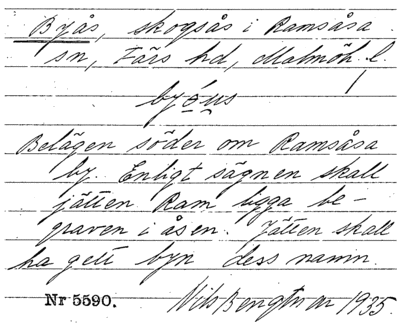 Byås, skogsås i Ramsåsa
sn, Färs hd, Malmöh. l.
byóus
Belägen söder om Ramsåsa
by. Enligt sägnen skall
jätten Ram ligga be-
graven i åsen. Jätten skall
ha gett byn dess namn.
Nr 5590. Nils Bengtsson 1935.